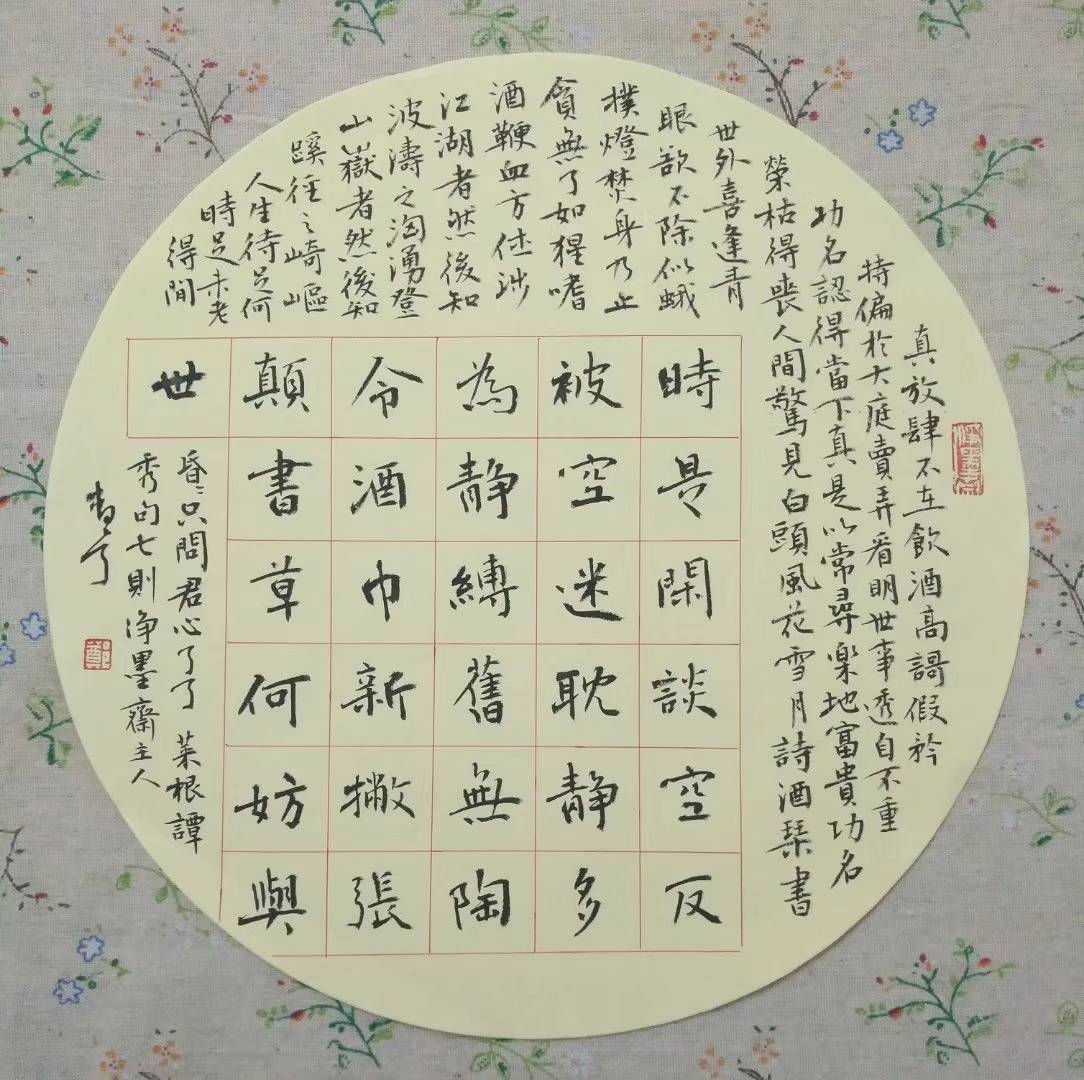 真放肆不在飲酒高謌假矜
持偏於大庭賣弄看明世事透自不重
功名認得當下真是以常尋樂地富貴功名
榮枯得喪人間驚見白頭風花雪月詩酒琴書
世外喜逢青
眼欲不除似蛾
撲燈焚身乃止
貪無了如猩嗜
酒鞭血方休涉
江湖者然後知
波濤之洶湧登
山嶽者然後知
蹊徑之崎嶇
人生待足何
時足未老
得間
時是閑談空反
被空迷耽静多
為静縛舊無陶
令酒巾新撇張
顛書草何妨與
世
昏〻只問君心了了 菜根譚
秀句七則净墨齋主人
鄭